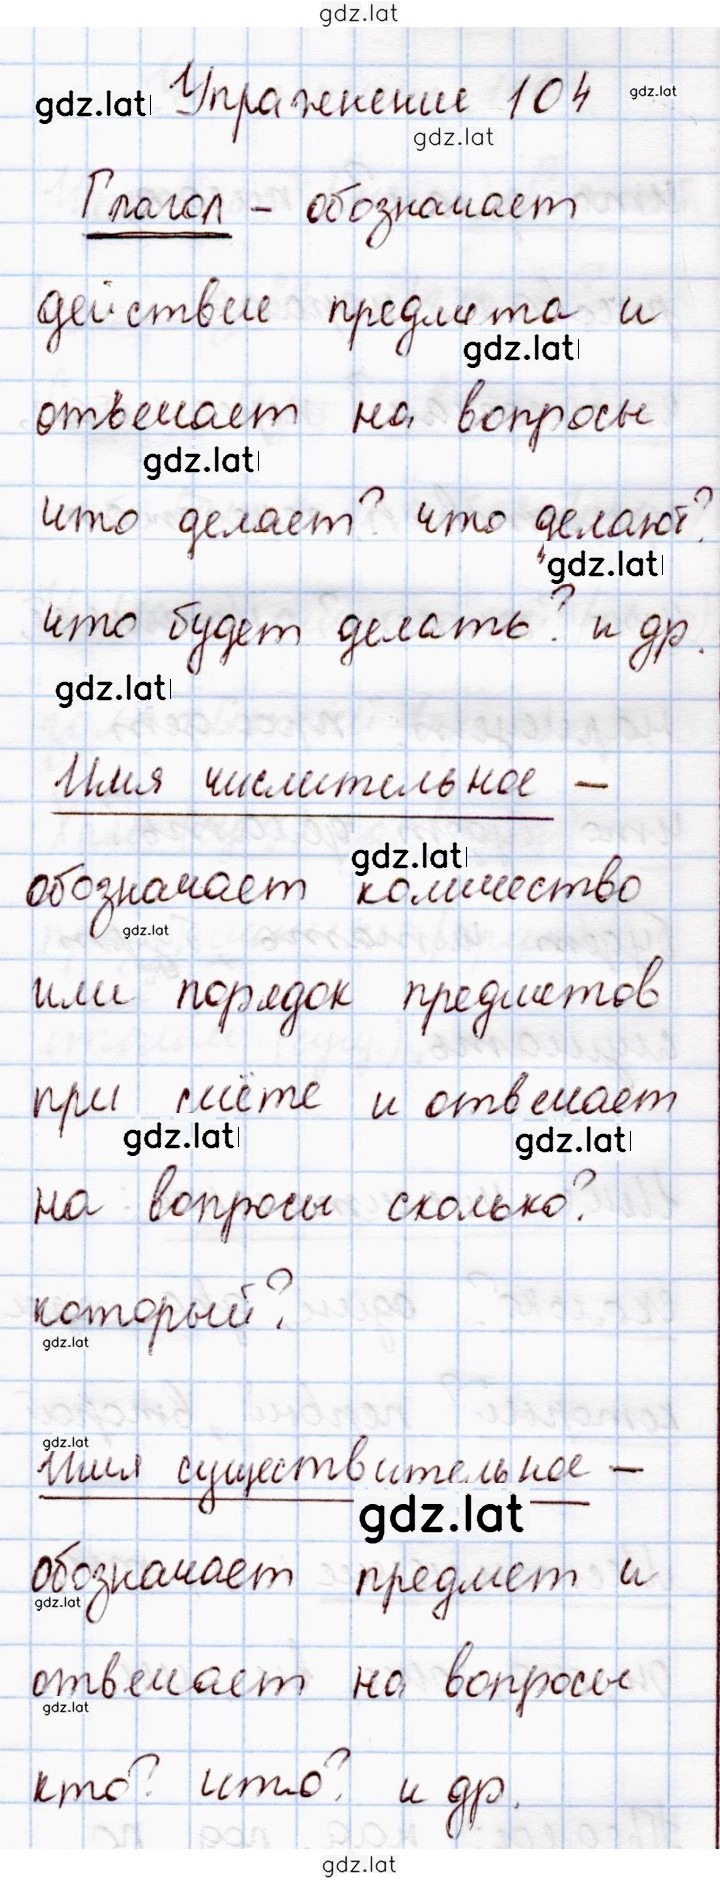 gdz.lat
gdz.lat Упражнение 104 gdz.lat
gdz.lat
Глагол - обозначает
действие предмета и
gdz.lat
отвечает на вопросы
gdz.lat
что делает? что делают?
gdz.lat
что будет делать? и др.
gdz.lat
Имя числительное -
gdz.lat
обозначает количество
gdz.lat
или порядок предметов
при счёте и отвечает
gdz.lat gdz.lat
на вопросы сколько?
который?
gdz.lat
gdz.lat
Имя существительное -
gdz.lat
обозначает предмет и
gdz.lat
отвечает на вопросы
gdz.lat
кто? что? и др.
gdz.lat